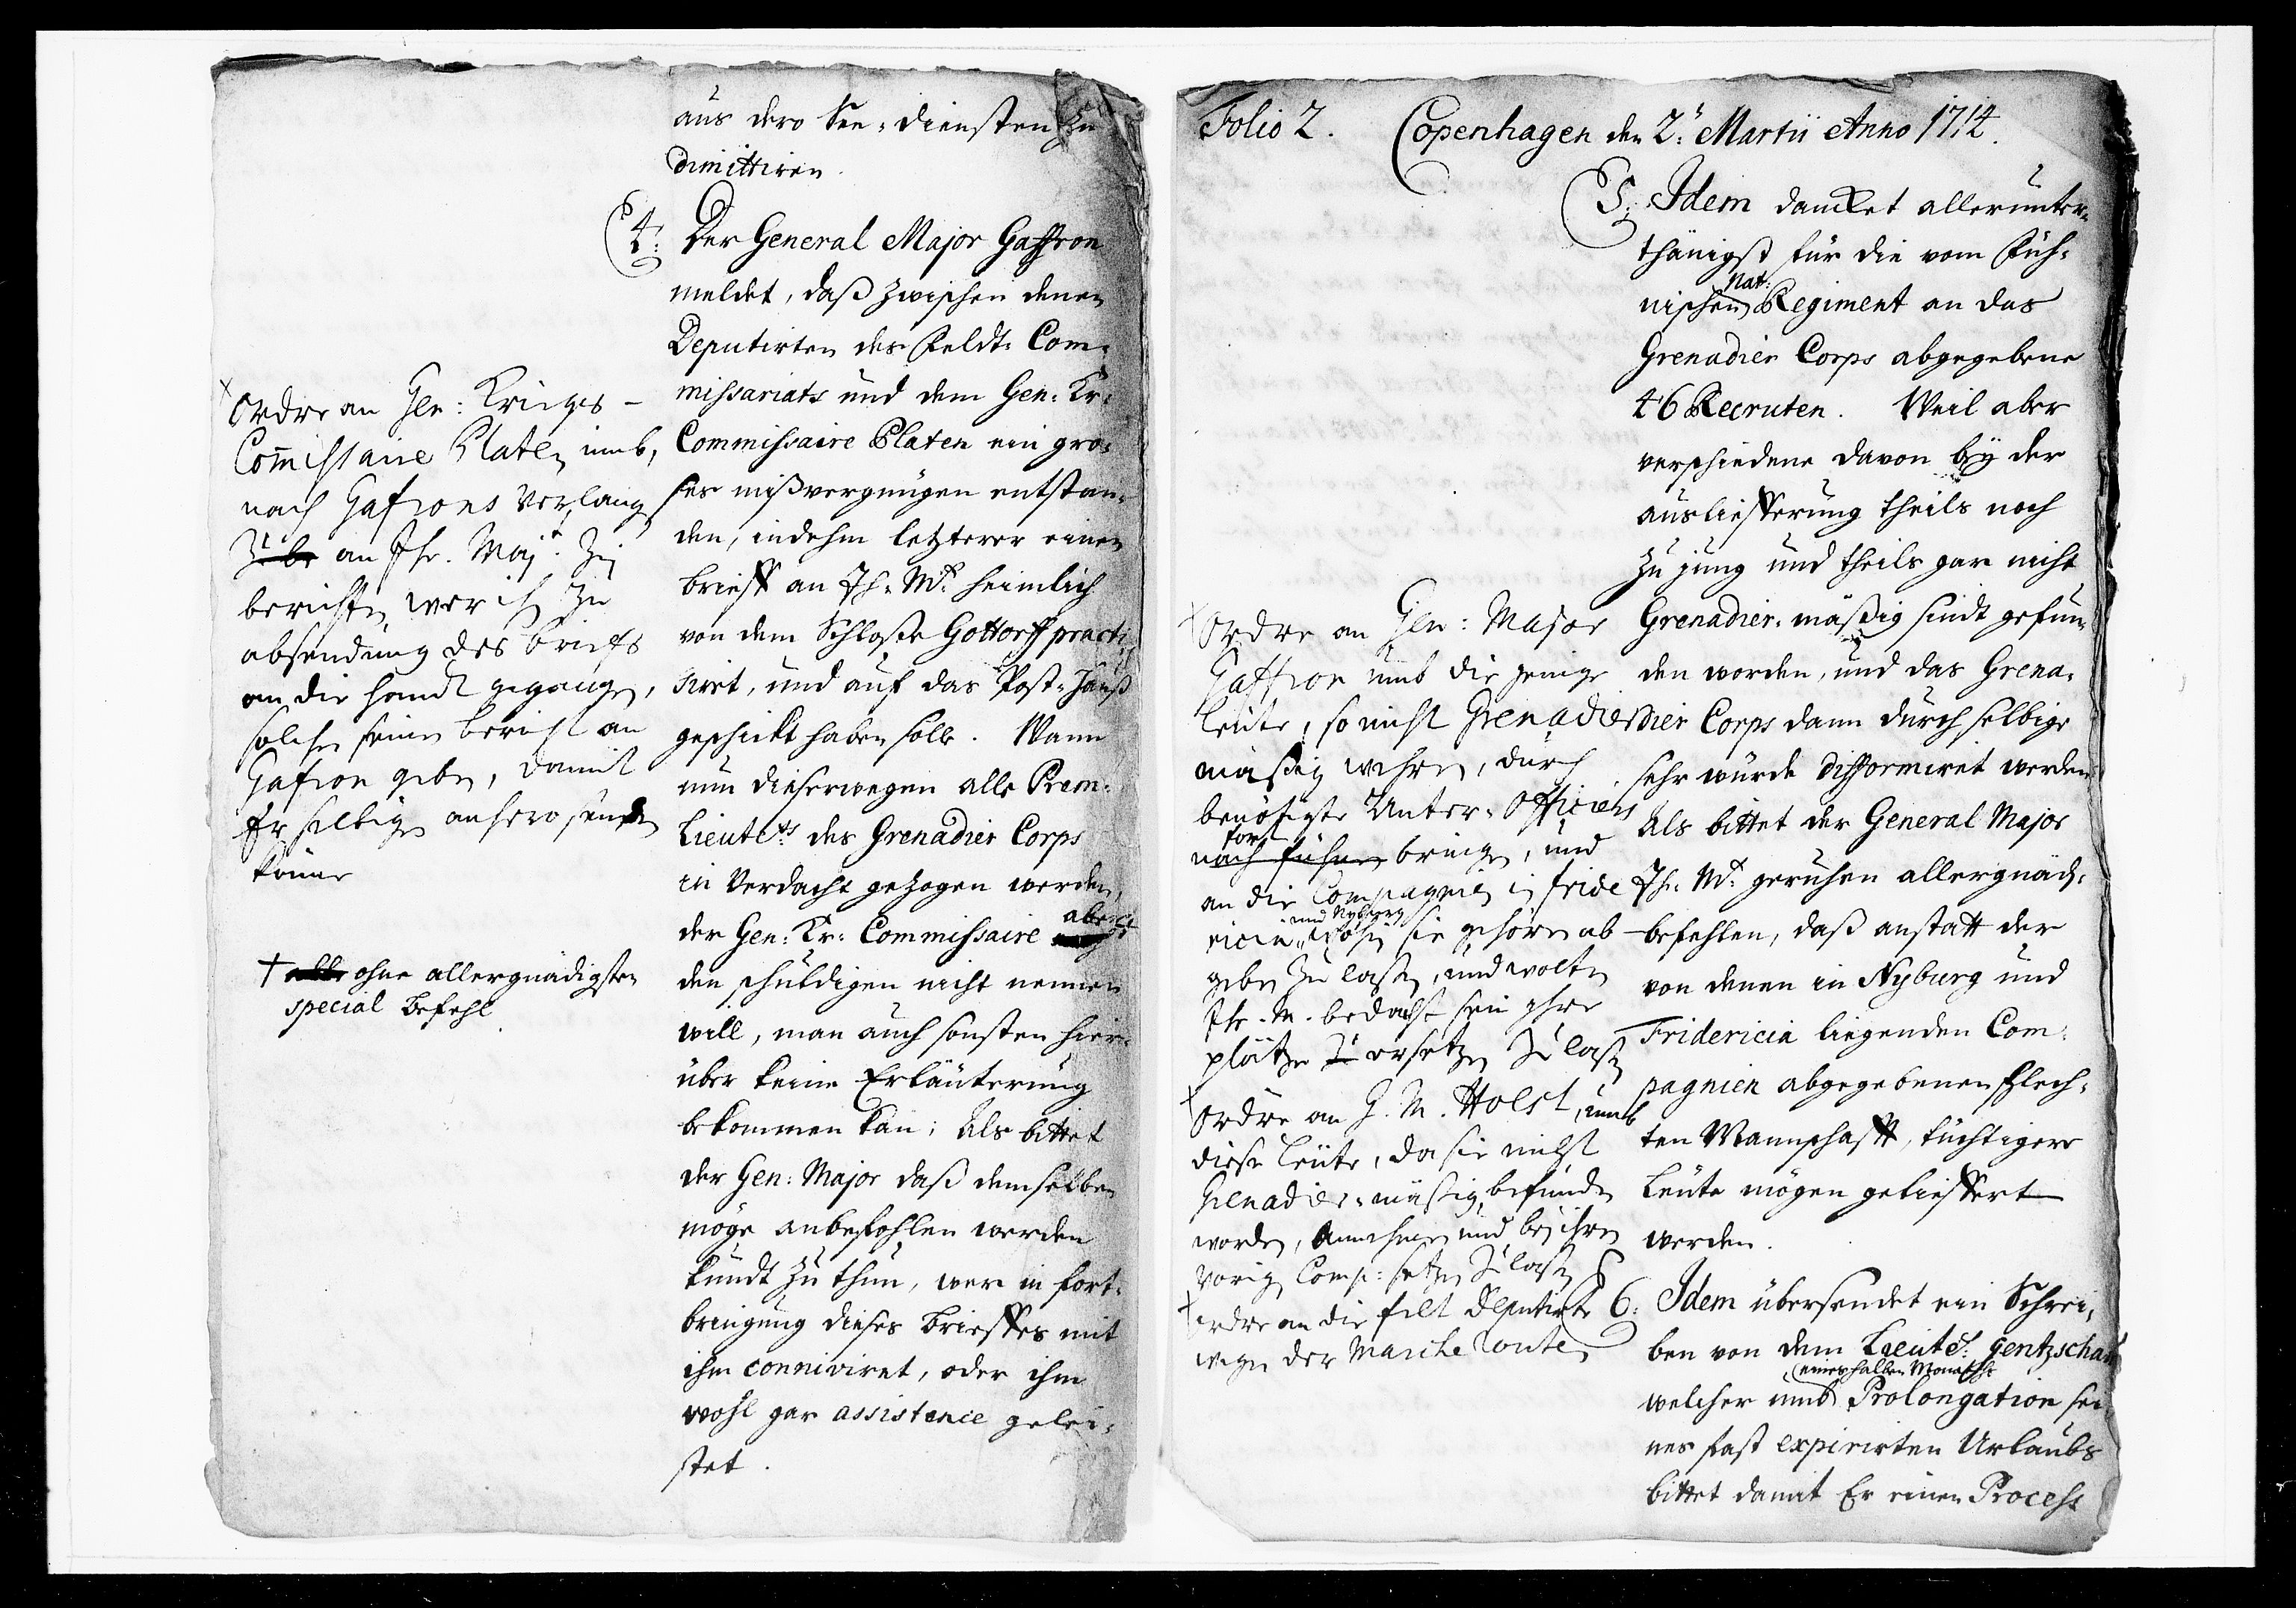 aus dero See-Diensten zu
dimittiren.
4: Der General Major Gaffron
meldet, daß zwischen denen
Deputirten des Feldt-Com-
missariats und dem Gen: Kr:
Commissaire Platen ein gro-
ses mißvergnügen entstan-
den, indehm letzterer einen
brieff an Ih: Mt: heimlich
von dem Schloße Gottorff practi-
siret, und auf das Post-Hauß
geschickt haben solle. Wann
nun dieserwegen alle Prem:
Lieutets: des Grenadier Corps
in Verdacht gezogen werden,
der Gen: Kr: Commissaire aber †
den schuldigen nicht nennen
will, man auch sonsten hier-
über keine Erläuterung
bekommen kan; Als bittet
der Gen: Major daß demselben
möge anbefohlen werden
kundt zu thun, wer in fort-
bringung dieses brieffes mit
ihm conniviret, oder ihm
wohl gar assistence gelei-
stet.
+ Ordre an Gen: Krieges-
Commissaire Platen umb,
nach Gafrons Verlang
zu be an Ihr. Majt: zu
berichten wer ihm zu
absendung des briefs
an die handt gegangen,
solchen seinen bericht an
Gafron geben, damit
Er selbigen anhero senden
könne
† alle ohne allergnädigsten
special befehl.
Folio 2. Copenhagen den 2t: Martii Anno 1714.
5: Idem dancket allerunter-
thänigst für die vom Füh-
nischen Nat: Regiment an das
Grenadier Corps abgegebene
46 Recruten. Weil aber
verschiedene davon bey der
auslieferung theils noch
zu jung und theils gar nicht
Grenadier-mäßig sindt gefun-
den worden, und das Grena-
dier Corps dann durch selbige
sehr würde difformiret werden
Als bittet der General Major
Ih: Mt: geruhen allergnäd:
befehlen, daß anstatt der
von denen in Nyburg und
Fridericia liegenden Com-
pagnien abgegebenen schlech-
ten Mannschafft, tüchtigere
Leute mögen gelieffert
werden.
+ Ordre an Gen: Major
Gaffron umb die jenige
leute, so nicht Grenadier
mäßig wehren, durch
benötigte Unter-Officiers
nach führen fort bringen, und
an die Compagnien in Fride
ricia und Nyborg, wohin sie gehören ab
geben zu lassen, und wolten
Ihr. M. bedacht sein ihre
plätze zu ersetzen zu lassen
+ Ordre an G. M. Holst, umb
diese leute, da sie nicht
Grenadier-mäßig befunden
worden, annehmen und bey ihren
vorigen Comp: setzen zu lassen
6: Idem übersendet ein Schrei-
ben von dem Lieutet: Gentzschau
welcher umb eines halben Monaths Prolongation sei-
nes fast expirirten Urlaubs
bittet damit Er einen Process
+ ordre an die felt Deputirte
wegen der Marche Route